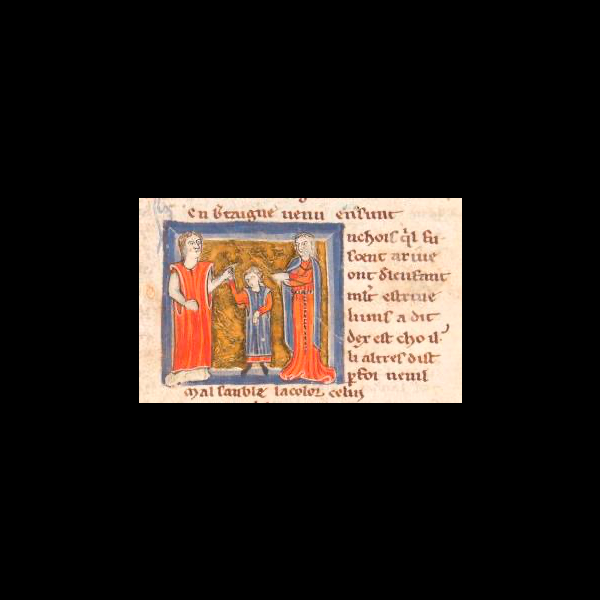 en b̾taigne uenu en sunt
uchois q̾l fu
soent ariue
ont d̾l enfant
mlt̾ estriue
li uns a dit
dex est cho il·
li altres dist
ꝑ foi nenil
Mal sauble la color celui